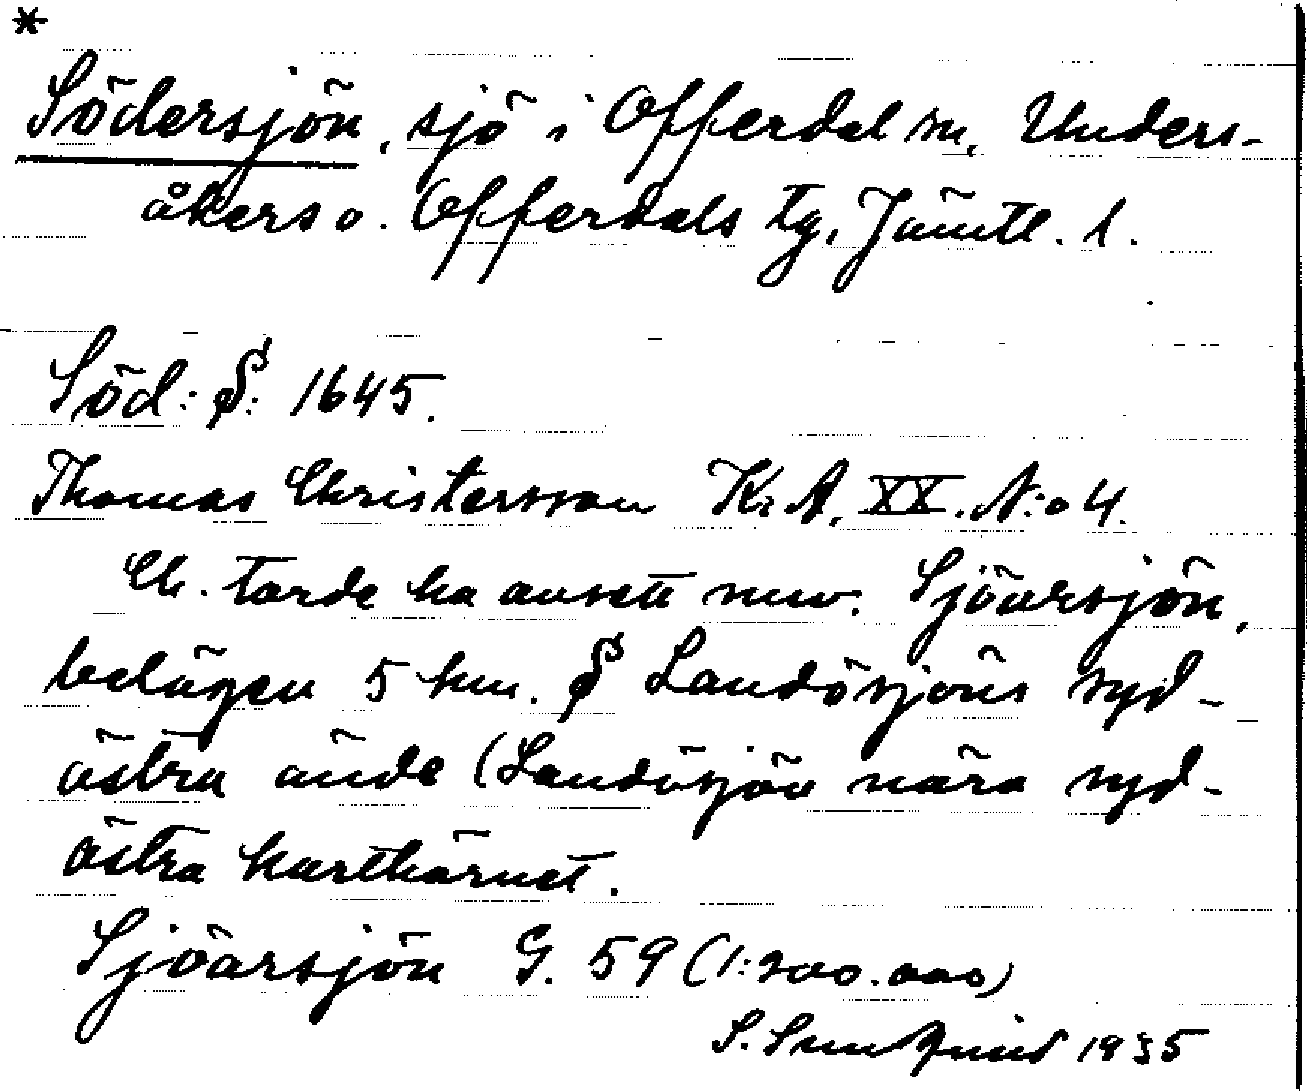 *
Södersjön, sjö i Offerdal sn, Unders-
åkers o. Offerdals tg, Jämtl. l.
Söd: S: 1645.
Thomas Christersson K. A. XX. N:o 4.
Ch. torde ha avsett nuv. Sjöarsjön,
belägen 5 km. S Landösjöns syd-
östra ände (Landösjön nära syd-
östra karthörnet.
Sjöarsjön G. 59 (1:200.000)
1935